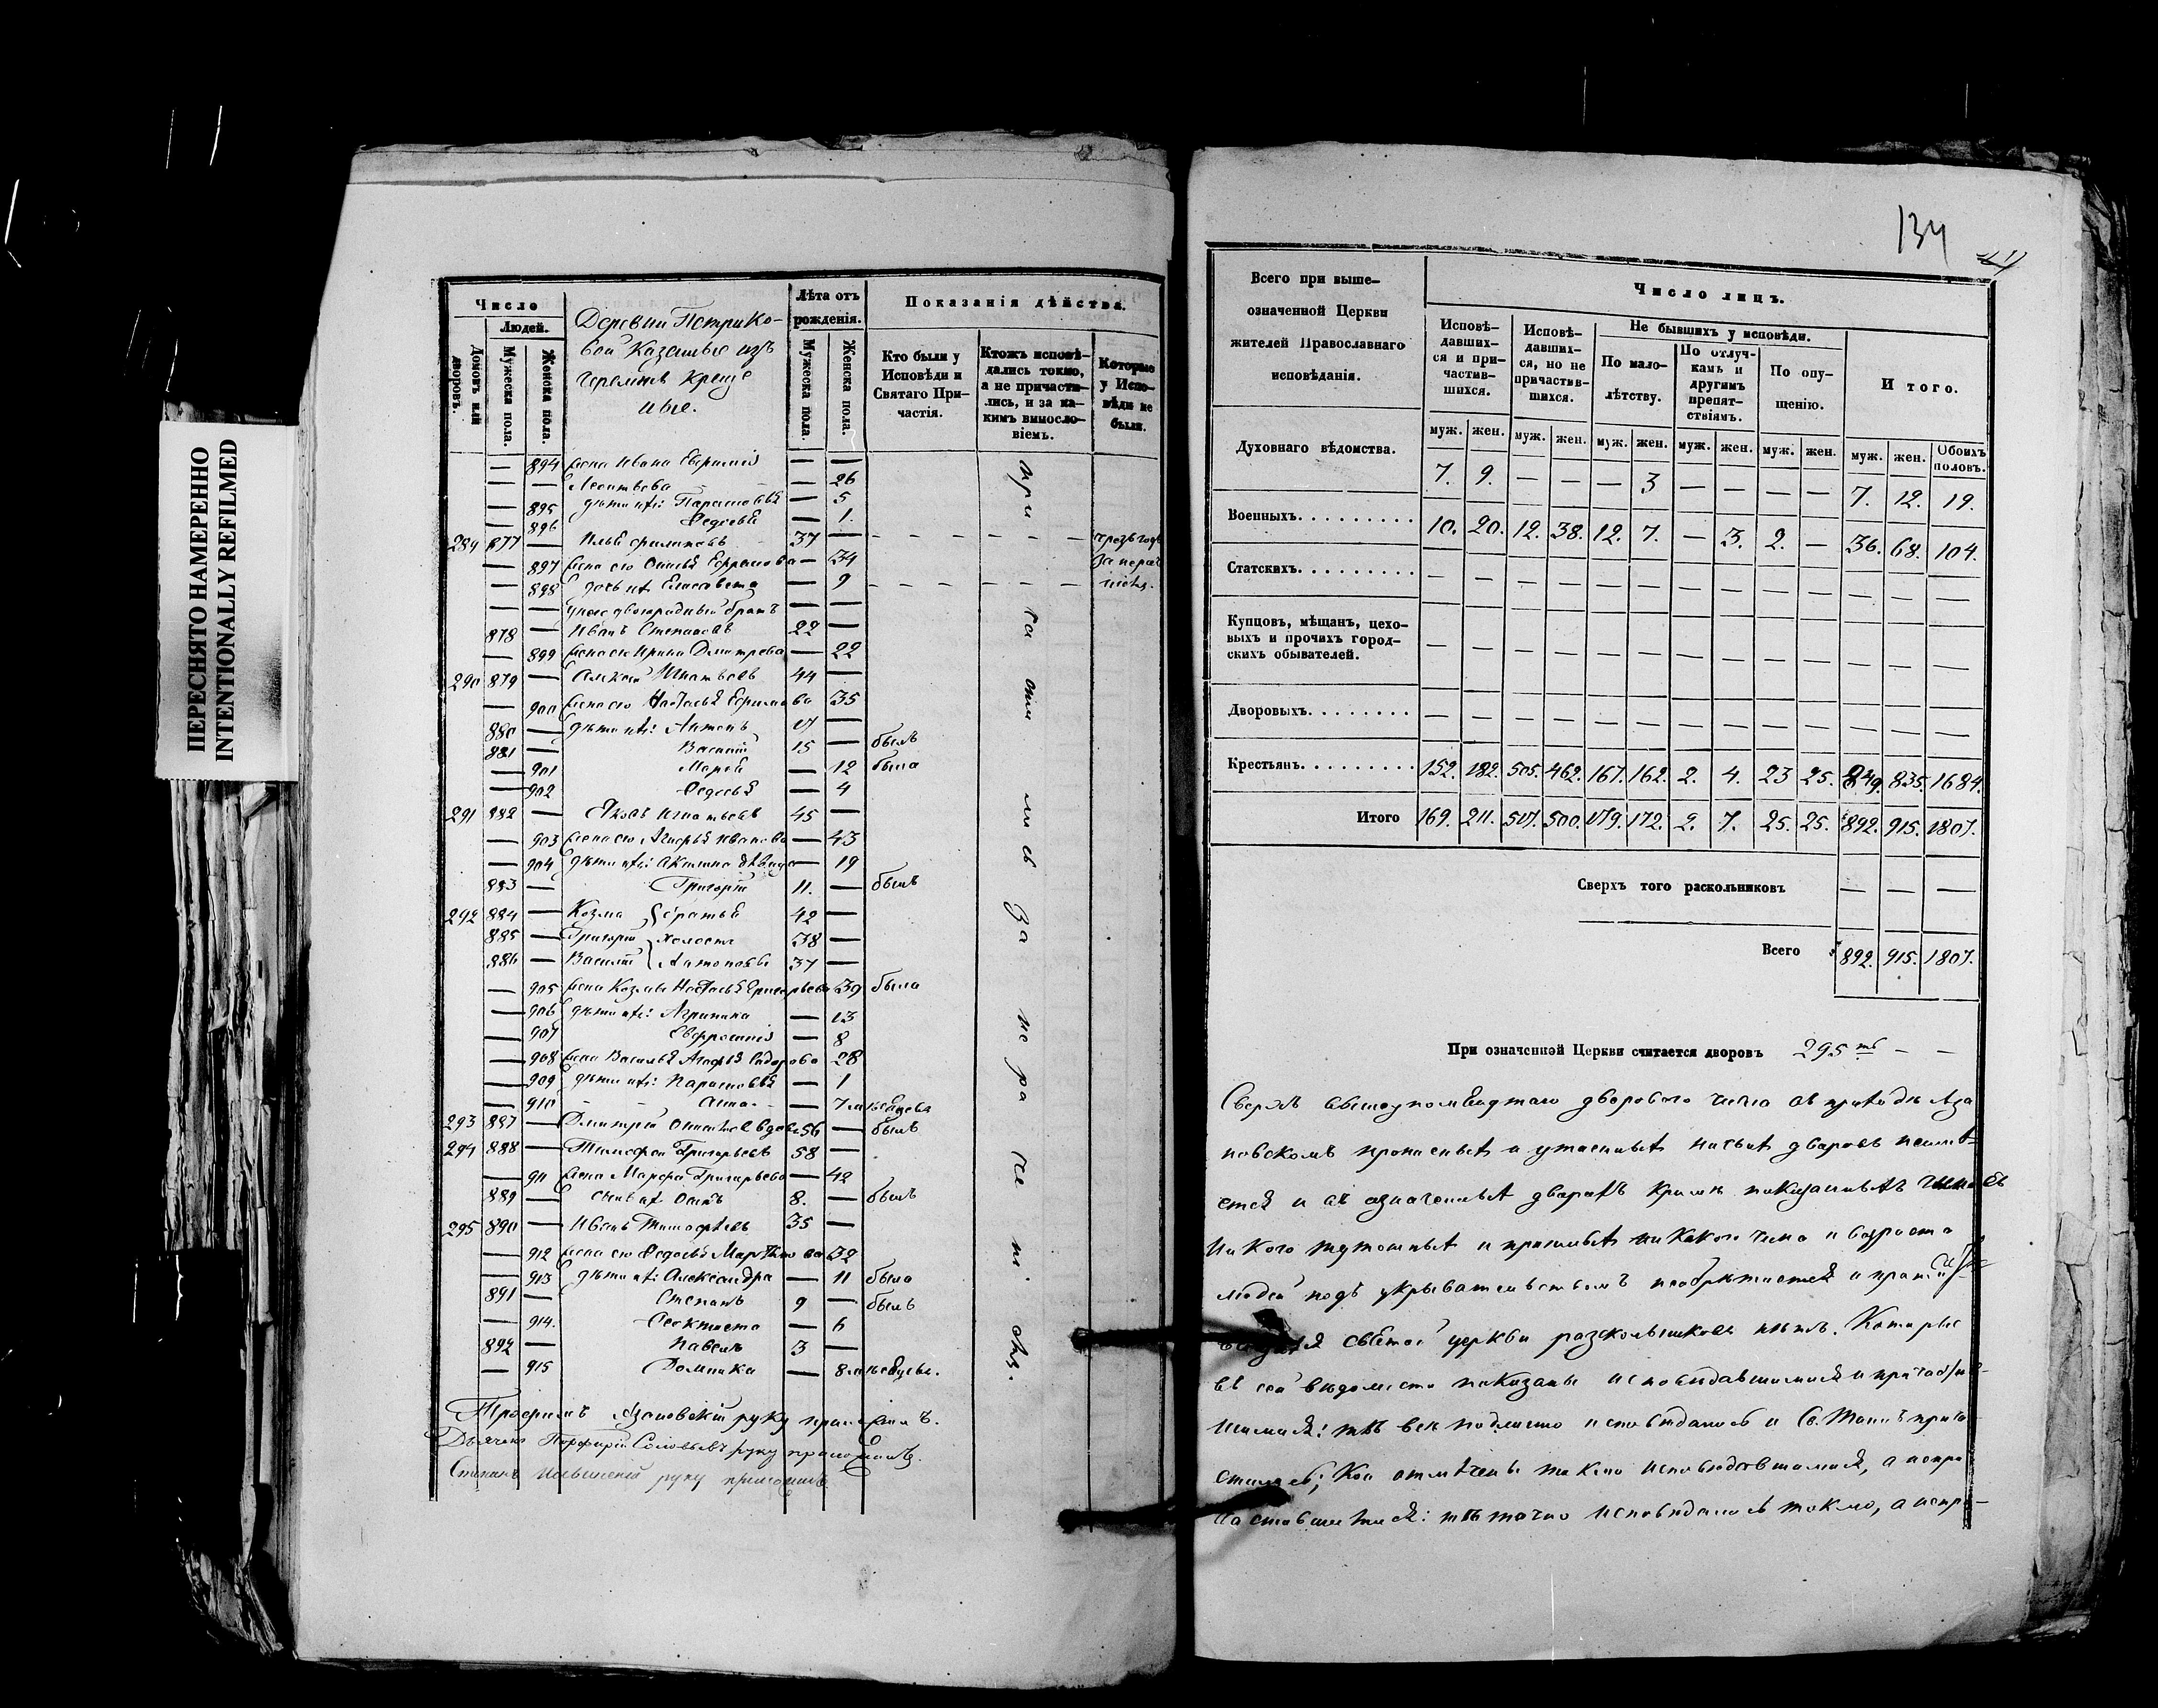 ПЕРЕСНЯТО НАМЕРЕННО
INTENTIONALLY REFILMED
Число
Людей.
Домовъ или дворовъ.
Мужеска пола.
Женска пола.
Деревни Петрико-
вой Казенные изъ
Черемисъ Креще
ные.
Лѣта отъ рожденія.
Мужеска пола.
Женска пола.
Показанія дѣйства.
Кто были у Исповѣди и Святаго Причастія.
Ктожъ исповѣдались токмо, а не причастились, и за какимъ винословіемъ.
Которые у Исповѣди не были.
— 894 жена Ивана — —
— — Леонтьева — 26
— 895 дѣти ихъ: Парасковья — 5
— 896 Федосья — 1.
289 877 — Илья Филиповъ 37 —
— 897 жена его — 34 За нерач
— 898 дочь их Елисавета — 9 ніемъ.
— — двоюродный братъ — —
878 — Иванъ Степановъ 22 —
— 899 жена его Ирина Дмитрева — 22
290 879 — Игнатьевъ 44 —
— 900 жена его Наталья Ефимова 35
880 — дѣти ихъ: Антонъ 17 —
881 — Василій 15 — былъ
— 901 Марья — 12 была
— 902 Федосья — 4
291 882 — Яковъ Игнатьевъ 45 —
— 903 жена его Иванова — 43
— 904 дѣти ихъ: Акилина дѣвица — 19
883 — Григорій 11. — былъ
292 884 — Козма братья 42 —
885 — Григорій холостъ 38 —
886 — Василій Антоновы 37 —
— 905 жена Козмы Настасья Григорьева 39 была
— 906 дѣти ихъ: Агрипина — 13
— 907 Евфросинія — 8
— 908 жена Василья Агафья Сидорова 28
— 909 дѣти ихъ: Парасковья — 1
— 910 Анна — 7 мѣсяцевъ
293 887 — Дмитрій вдовъ 56 — былъ
294 888 — Тимофей Григорьевъ 58 —
— 911 жена Марфа Григорьева — 42
889 — сынъ их Осипъ 8. — былъ
295 890 — Иванъ Тимофѣевъ 35 —
— 912 жена его Федосья Мартынова 32
— 913 дѣти их: Александра — 11 была
891 — Степанъ 9 — былъ
— 914. Феоктиста — 6
892 — Павелъ 3 —
— 915 Домника — 8 мѣсяцевъ.
при ча сти ли сь за не ра че ні емъ.
Трофимъ Азановскій руку приложилъ.
Дьячекъ Порфирій Соловьевъ руку приложилъ.
Степанъ руку приложилъ
134
Всего при выше-
означенной Церкви
жителей Православнаго
исповѣданія.
Число лицъ.
Исповѣ-
давших-
ся и при-
частив-
шихся.
Исповѣ-
давших-
ся, но не
причастив-
шихся.
Не бывшихъ у исповѣди.
По мало-
лѣтству.
По отлуч-
камъ и
другимъ
препят-
ствіямъ.
По опу-
щенію.
Итого.
муж. жен. муж. жен. муж. жен. муж. жен. муж. жен. муж. жен. Обоихъ половъ.
Духовнаго вѣдомства. 7. 9. — — — 3 — — — — 7. 12. 19.
Военныхъ. 10. 20. 12. 38. 12. 7. — 3. 2. — 36. 68. 104.
Статскихъ. — — — — — — — — — — — — —
Купцовъ, мѣщанъ, цехо-
выхъ и прочихъ город-
скихъ обывателей. — — — — — — — — — — — — —
Дворовыхъ. — — — — — — — — — — — — —
Крестьянъ. 152. 182. 505. 462. 167. 162. 2. 4. 23 25. 849. 835. 1684.
Итого 169. 211. 517. 500. 179. 172. 2. 7. 25. 25. 892. 915. 1807.
Сверхъ того раскольниковъ — — —
Всего 892. 915. 1807.
При означенной Церкви считается дворовъ 295ть — —
Сверхъ вышеупомянутаго двороваго числа въ приходѣ Аза
новскомъ прописныхъ и утаенныхъ дворовъ неимѣ-
ется и въ означенныхъ дворахъ кромѣ показанныхъ
никого тутошныхъ и пришлыхъ никакого чина и возраста
людей подъ укрывательствомъ необрѣтается и
святой церкви раскольниковъ нѣтъ. Которые
въ сей вѣдомости показаны исповѣдавшимися и
шимися: тѣ всѣ подлинно исповѣдались и Св. Таинъ прича
стились; Кои отмѣчены токмо исповѣдавшимися, а непри
частившимися: тѣ точно исповѣдались токмо, а непри-